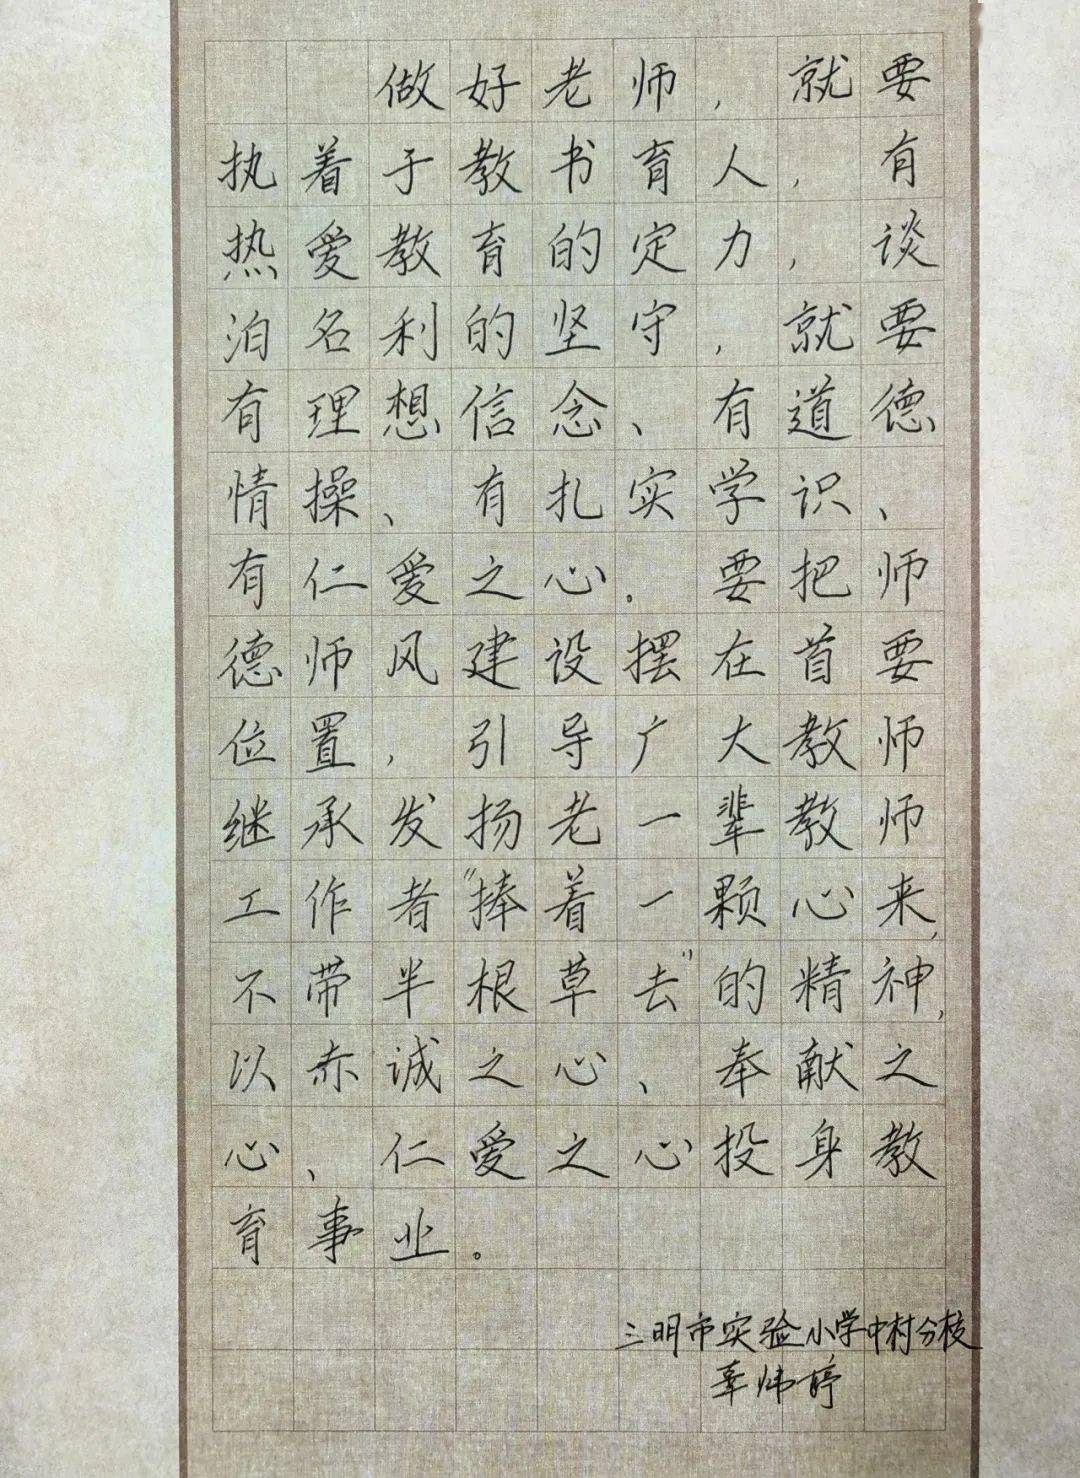 做好老师，就要
执着于教书育人，有
热爱教育的定力，谈
泊名利的坚守，就要
有理想信念、有道德
情操、有扎实学识、
有仁爱之心。要把师
德师风建设摆在首要
位置，引导广大教师
继承发扬老一辈教师
工作者“捧着一颗心来，
不带半根草去”的精神，
以赤诚之心、奉献之
心、仁爱之心投身教
育事业。
三明市实验小学中村分校
辜炜婷